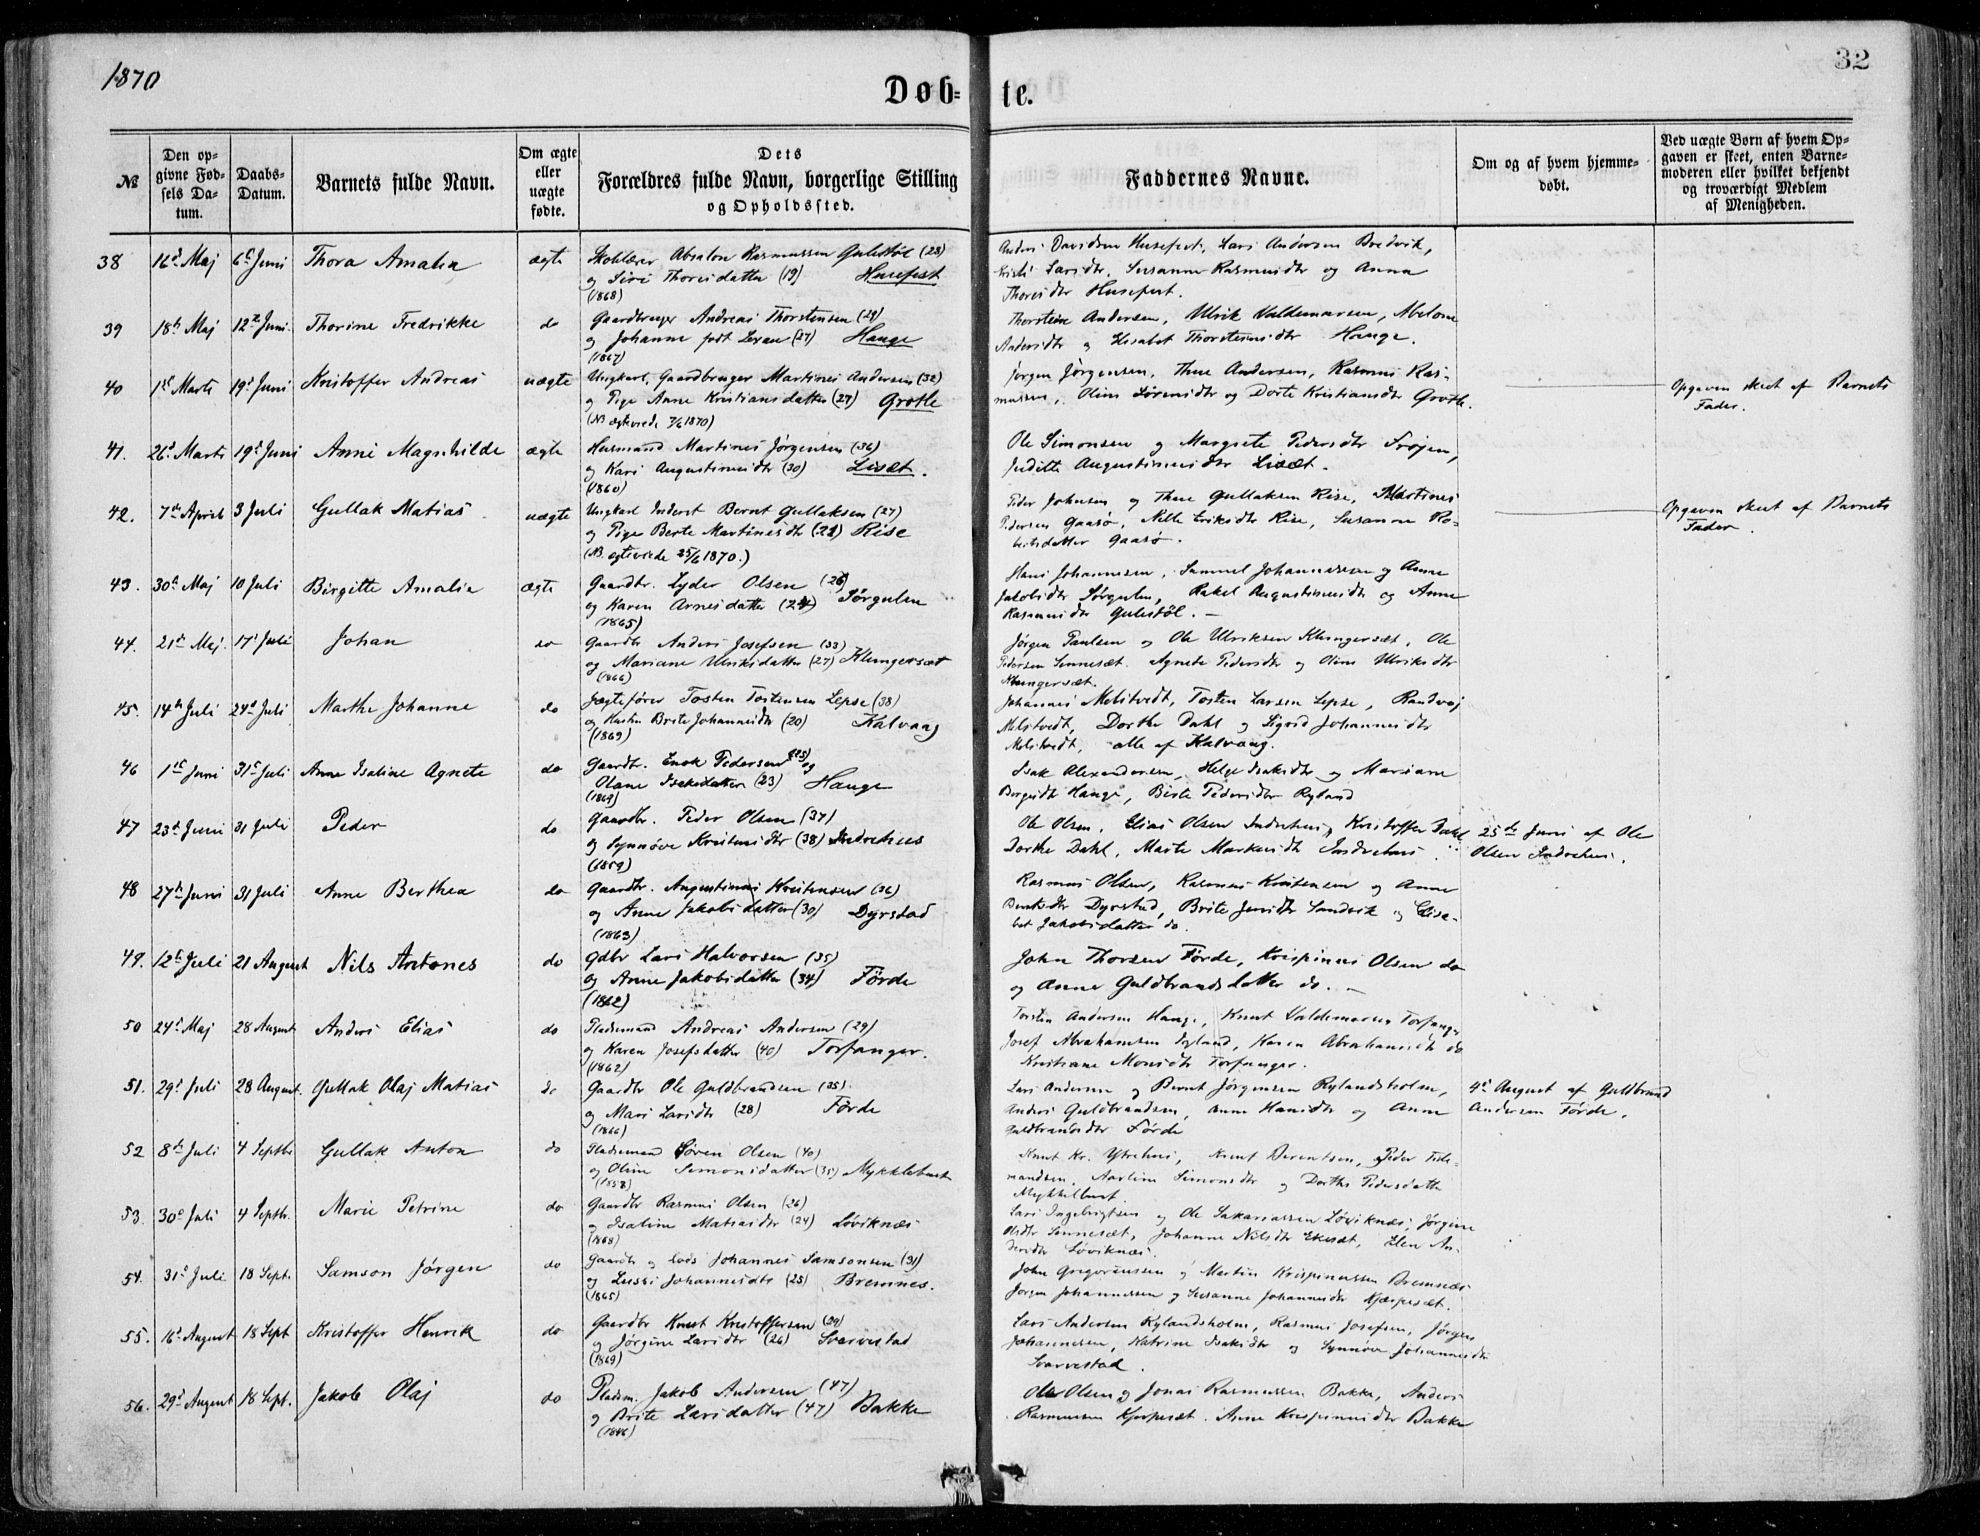 1870
32
Døb- te.
№
Den op-
givne Fød-
sels Da-
tum.
Daabs-
Datum.
Barnets fulde Navn.
Om ægte
eller
uægte
fødte.
Dets
Forældres fulde Navn, borgerlige Stilling
og Opholdssted.
Faddernes Navne.
Om og af hvem hjemme-
døbt.
Ved uægte Børn af hvem Op-
gaven er skeet, enten Barne-
moderen eller hvilket bekjendt
og troværdigt Medlem
af Menigheden.
38 16d Maj 6t Juni Thora Amalia ægte Skolelærer Absalon Rasmussen Gulestøl (23)
og Siri Thoresdatter (19) Husefest
(1868)
Anders Davidsen Husefest, Lars Andersen Bredvik,
Larsdtr, Susanne Rasmusdtr og Anna
Thoresdtr Husefest.
39 18d Maj 12te Juni Thorine Fredrikke do Gaardbruger Andreas Thorstensen (29)
og Johanne født Lexau (27) Hauge
(1867)
Thorstein Andersen, Ulrik Valdemarsen,
Andersdtr og Elisabet Thorsteinsdtr Hauge.
40 1st Marts 19d Juni Kristoffer Andreas uægte Ungkarl, Gaardbruger Martines Andersen (32)
og Pige Anne Kristiansdatter (27) Grotle
(NB ægteviede 7/6 1870)
Jørgen Jørgensen, Thue Andersen, Rasmus Ras-
mussen, Oline Sørensdtr og Dorte Kristiansdtr Grotle.
Opgaven skeet af Barnets
Fader.
41. 26d Marts 19d Juni Anne Magnhilde ægte Husmand Martines Jørgensen (36)
og Kari Augustinusdtr (30) Lisæt.
(1860)
Ole Simonsen og Margrete Pedersdtr Frøjen,
Juditte Augustinusdtr Lisæt.
42. 7de April 3 Juli Gullak Matias uægte Ungkarl Inderst Bernt Gullaksen (27)
og Pige Berte Martinesdtr (21) Rise
(NB. ægteviede 25/6 1870.)
Peder Johnsen og Thue Gullaksen Rise, Martines
Pedersen Gaasø, Nille Eriksdtr Rise, Susanne Ro-
bertsdatter Gaasø.
Opgaven skeet af Barnets
Fader.
43. 30d Maj 10 Juli Birgitte Amalia ægte Gaardbr. Lyder Olsen (26)
og Karen Arnesdatter (24) Sørgulen
(1865)
Hans Johannesen, Samuel Johannessen og Anne
Jakobsdtr Sørgulen, Rakel Augustinusdtr og Anne
Rasmusdtr Gulestøl.
44. 21d Maj. 17d Juli Johan do Gaardbr Anders Josefsen (33)
og Mariane Ulriksdatter (27) Klungersæt
(1866)
Jørgen Paulsen og Ole Ulriksen Klungersæt, Ole
Pedersen Sennesæt. Agnete Pedersdtr og Oline Ulriksdtr
Klungersæt.
45. 14de Juli 24d Juli Marthe Johanne do Jægtefører Tosten Tostensen Lepse (38)
og Hustru Brite Johannesdtr (20) Kalvaag
(1869)
Johannes Melstvedt, Tosten Larsen Lepse, Randvej
Melstvedt, Dorthe Dahl og Sigrid Johannesdtr
Melstvedt, alle af Kalvaag.
46 1st Juni 31st Juli Anne Isaline Agnete do Gaardbr. Enok Pedersen (25) og
Olane Isaksdatter (23) Hauge
(1869)
Isak Alexandersen, Helge Isaksdtr og Mariane
Hauge, Birte Pedersdtr Ryland
47 23d Juni 31 Juli Peder do Gaardbr. Peder Olsen (37)
og Synnøve Kristensdtr (38) Indrehus
(1859)
Ole Olsen, Elias Olsen Indrehus, Kristoffer Dahl
Dorthe Dahl, Marte Markusdtr Indrehus.
25de Juni af Ole
Olsen Indrehus.
48 27de Juni 31 Juli Anne Berthea do Gaardbr. Augustinus Kristensen (36)
og Anne Jakobsdatter (30) Dyrstad
(1863)
Rasmus Olsen, Rasmus Kristensen og Anne
Berntsdtr Dyrstad, Brite Jensdtr Sandvik og Elisa-
bet Jakobsdatter do.
49. 12te Juli 21 August Nils Antones do Gdbr Lars Halvorsen (35)
og Anne Jakobsdatter (34) Førde
(1862)
John Thorsen Førde, Krispinus Olsen do
og Anne Guldbrandsdatter do.
50 24d Maj 28 August Anders Elias do Pladsmand Andreas Andersen (29)
og Karen Josefsdatter (40) Torfanger.
(1862)
Torsten Andersen Hauge, Knut Valdemarsen Torfanger
Josef Abrahamsen Ryland, Karen Abrahamsdtr do
Kristiane Monsdtr Torfanger.
51. 29d Juli 28 August. Gullak Olaj Matias do Gaardbr Ole Guldbrandsen (35)
og Mari Larsdtr (28) Førde
(1866)
Lars Andersen og Bernt Jørgensen Rylandsholm,
Anders Guldbrandsen, Anne Hansdtr og Anne
Guldbrandsdtr Førde
4d August af Guldbrand
Andersen Førde.
52 8de Juli 4 Septbr Gullak Anton do Pladsmand Søren Olsen (40)
og Oline Simonsdatter (35) Myklebust
(1858)
Knut Kr. Ytrehus, Knut Berentsen, Peder Tide-
mandsen, Karline Simonsdtr og Dorthe Pedersdatter
Myklebust.
53. 30d Juli 4 Septbr. Marie Petrine do Gaardbr Rasmus Olsen (26)
og Isaline Matiasdtr (24) Løviknæs
(1868)
Lars Ingebrigtsen og Ole Sakariassen Løviknæs, Jørgine
Olsdtr Sennesæt, Johanne Nilsdtr Ekesæt, Elen An-
dersdtr Løviknæs.
54. 31d Juli 18 Sept. Samson Jørgen do Gaardbr og Lods Johannes Samsonsen (31)
og Lussi Johannesdtr (25) Bremnes.
(1865)
John Gregoriussen og Martin Krispinussen Bremnæs
Jørgen Johannessen og Susanne Johannesdtr Kjærpesæt.
55. 16d August 18 Sept Kristoffer Henrik do Gaardbr Knut Kristoffersen (29)
og Jørgine Larsdtr (26) Svarvestad
(1869)
Lars Andersen Rylandsholm, Rasmus Josefsen, Jørgen
Johannessen, Katrine Isaksdtr og Synnøve Johannesdtr
Svarvestad.
56. 29d August 18 Sept. Jakob Olaj do Pladsm. Jakob Andersen (47)
og Brite Larsdatter (47) Bakke
(1846)
Ole Olsen og Jonas Rasmussen Bakke, Anders
Rasmussen Kjerpesæt. Anne Krispinusdtr Bakke